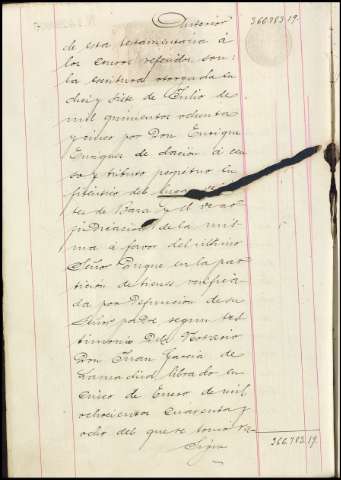 Anterior 360.783 19.
de esta testamentaria á
los Censos referidos son:
la escritura otorgada en
diez y siete de Julio de
mil quinientos ochenta
y cinco por Don Enrique
Enriquez de dación á cen
so y tributo perpetuo en
fitéutico del
tes de Baza y el de ad
judicacion de la mis
ma á favor del último
Señor Duque en la par
tición de bienes verifica
da por defuncion de su
Señor padre segun tes
timonio del Notario
Don Juan García de
Lamadrid librado en
cinco de Enero de mil
ochocientos cuarenta y
ocho del que se tomó ra
Sigue 360.783 19.